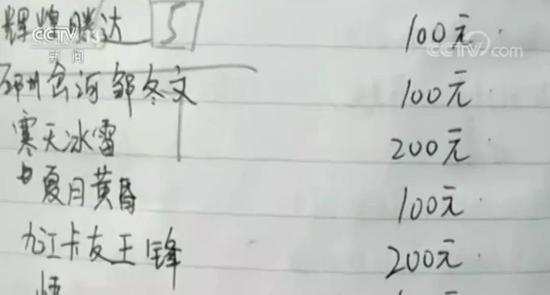 CCTV 13
新闻
CCTV.com
辉煌腾达 5 100元
邹冬文 100元
寒天冰雪 200元
夏月黄昏 100元
九江卡友王锋 200元